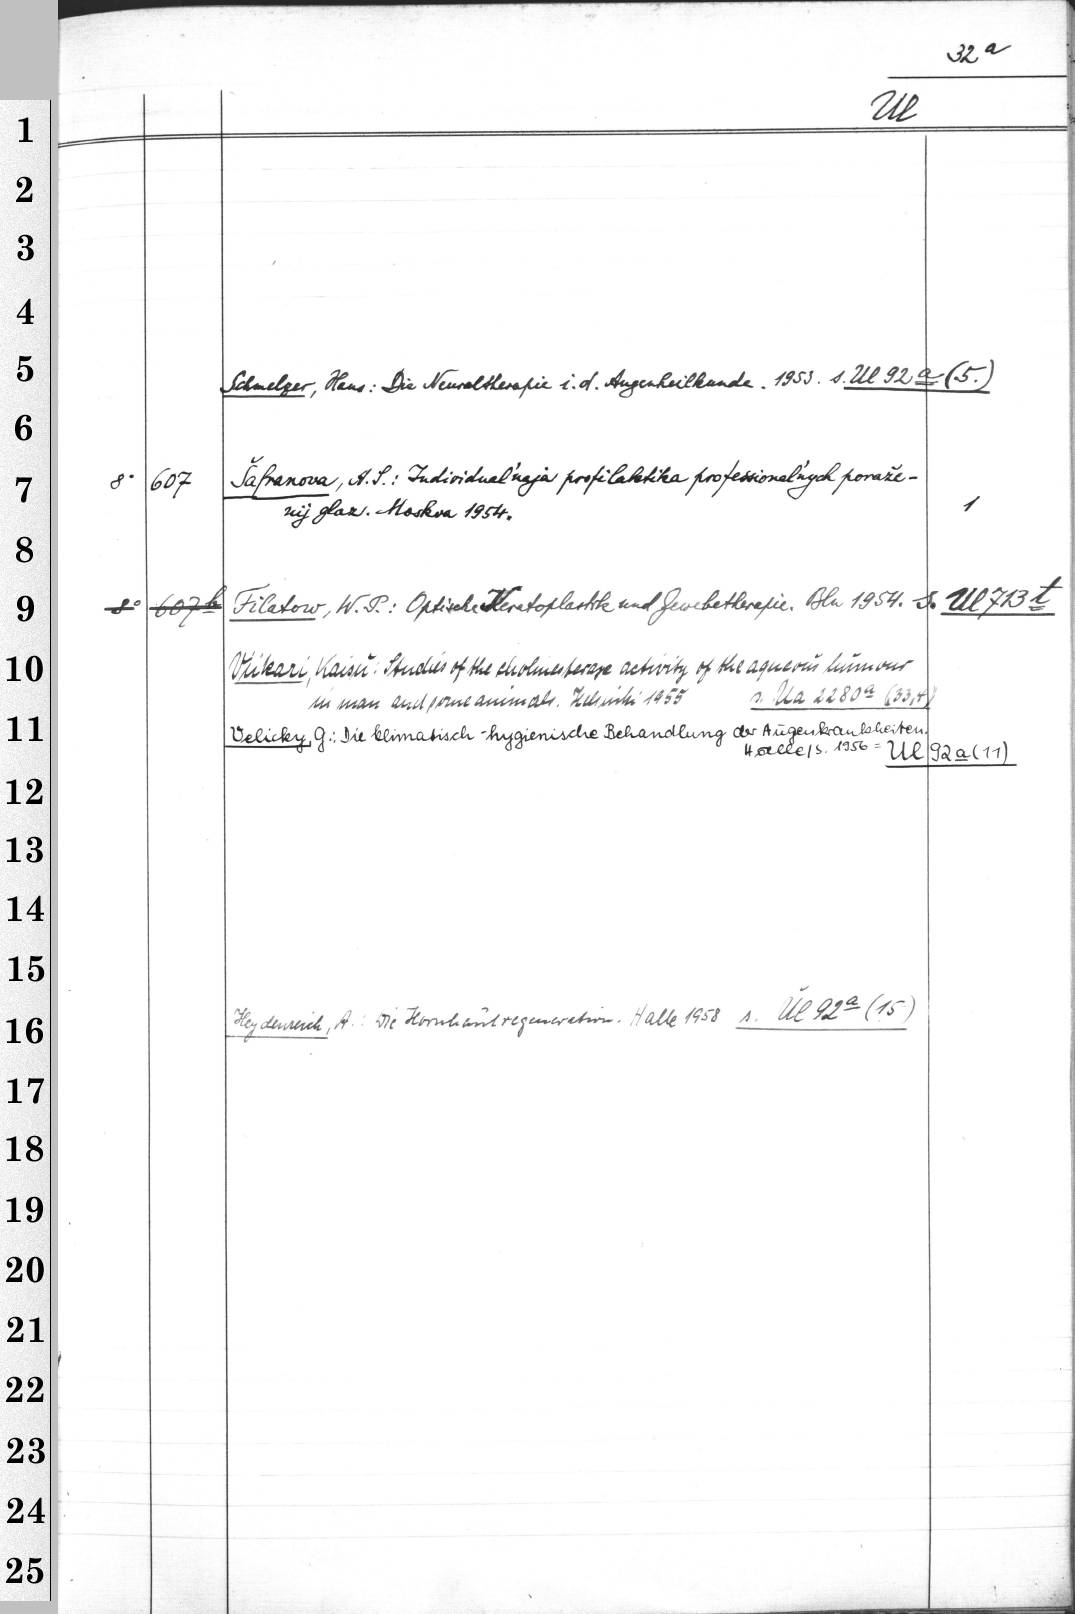 32a
Ul
1
2
3
4
5
Schmelzer, Hans: Die Neuraltherapie i. d. Augenheilkunde. 1953. s. Ul 92 a (5.)
6
7
8° 607 Šafranova, A. S.: Individual'naja profilaktika professional'nych poraže-
nij glaz. Moskva 1954. 1
8
9
8° 607b Filatow, W. P.: Optische Keratoplastik und Gewebetherapie. Bln 1954. s. Ul 713 t
10
Viikari, Kaisu: Studies of the cholinesterase activity of the aqueous humour
in man and some animals. Helsinki 1955 s. Ua 2280a (33,4)
11
Velicky, G.: Die klimatisch-hygienische Behandlung der Augenkrankheiten.
Halle/S. 1956 = Ul 92 a (11)
12
13
14
15
16
Heydenreich, A.: Die Hornhautregeneration. Halle 1958 s. Ul 92a (15)
17
18
19
20
21
22
23
24
25